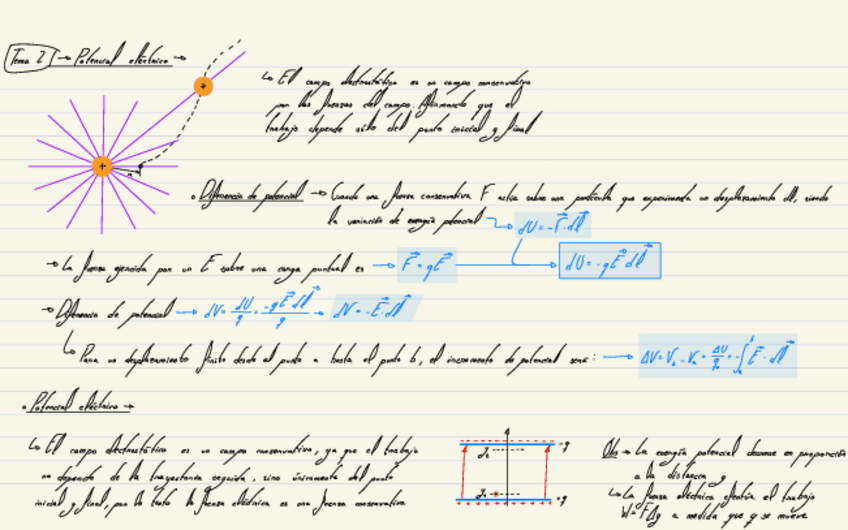 Tema 2 → Potencial eléctrico →
↳ El campo electrostático es un campo conservativo
por las fuerzas del campo. Afirmando que el
trabajo depende sólo del punto inicial y final
• Diferencia de potencial → Cuando una fuerza conservativa F actúa sobre una partícula que experimenta un desplazamiento dl, siendo
la variación de energía potencial → dU = -F⃗·dl⃗
→ La fuerza ejercida por un E sobre una carga puntual es → F⃗ = qE⃗ → dU = -qE⃗dl⃗
→ Diferencia de potencial → dV = dU/q = -qE⃗dl⃗/q → dV = -E⃗·dl⃗
↳ Para un desplazamiento finito desde el punto a hasta el punto b, el incremento de potencial será: → ΔV = V_b - V_a = ΔU/q = -∫_a^b E⃗·dl⃗
• Potencial eléctrico →
↳ El campo electrostático es un campo conservativo, ya que el trabajo
no depende de la trayectoria seguida, sino únicamente del punto
inicial y final, por lo tanto la fuerza eléctrica es una fuerza conservativa
-q
+q
Obs → La energía potencial decrece en proporción
a la distancia y
↳ La fuerza eléctrica el trabajo
W = FΔy a medida que y se mueve